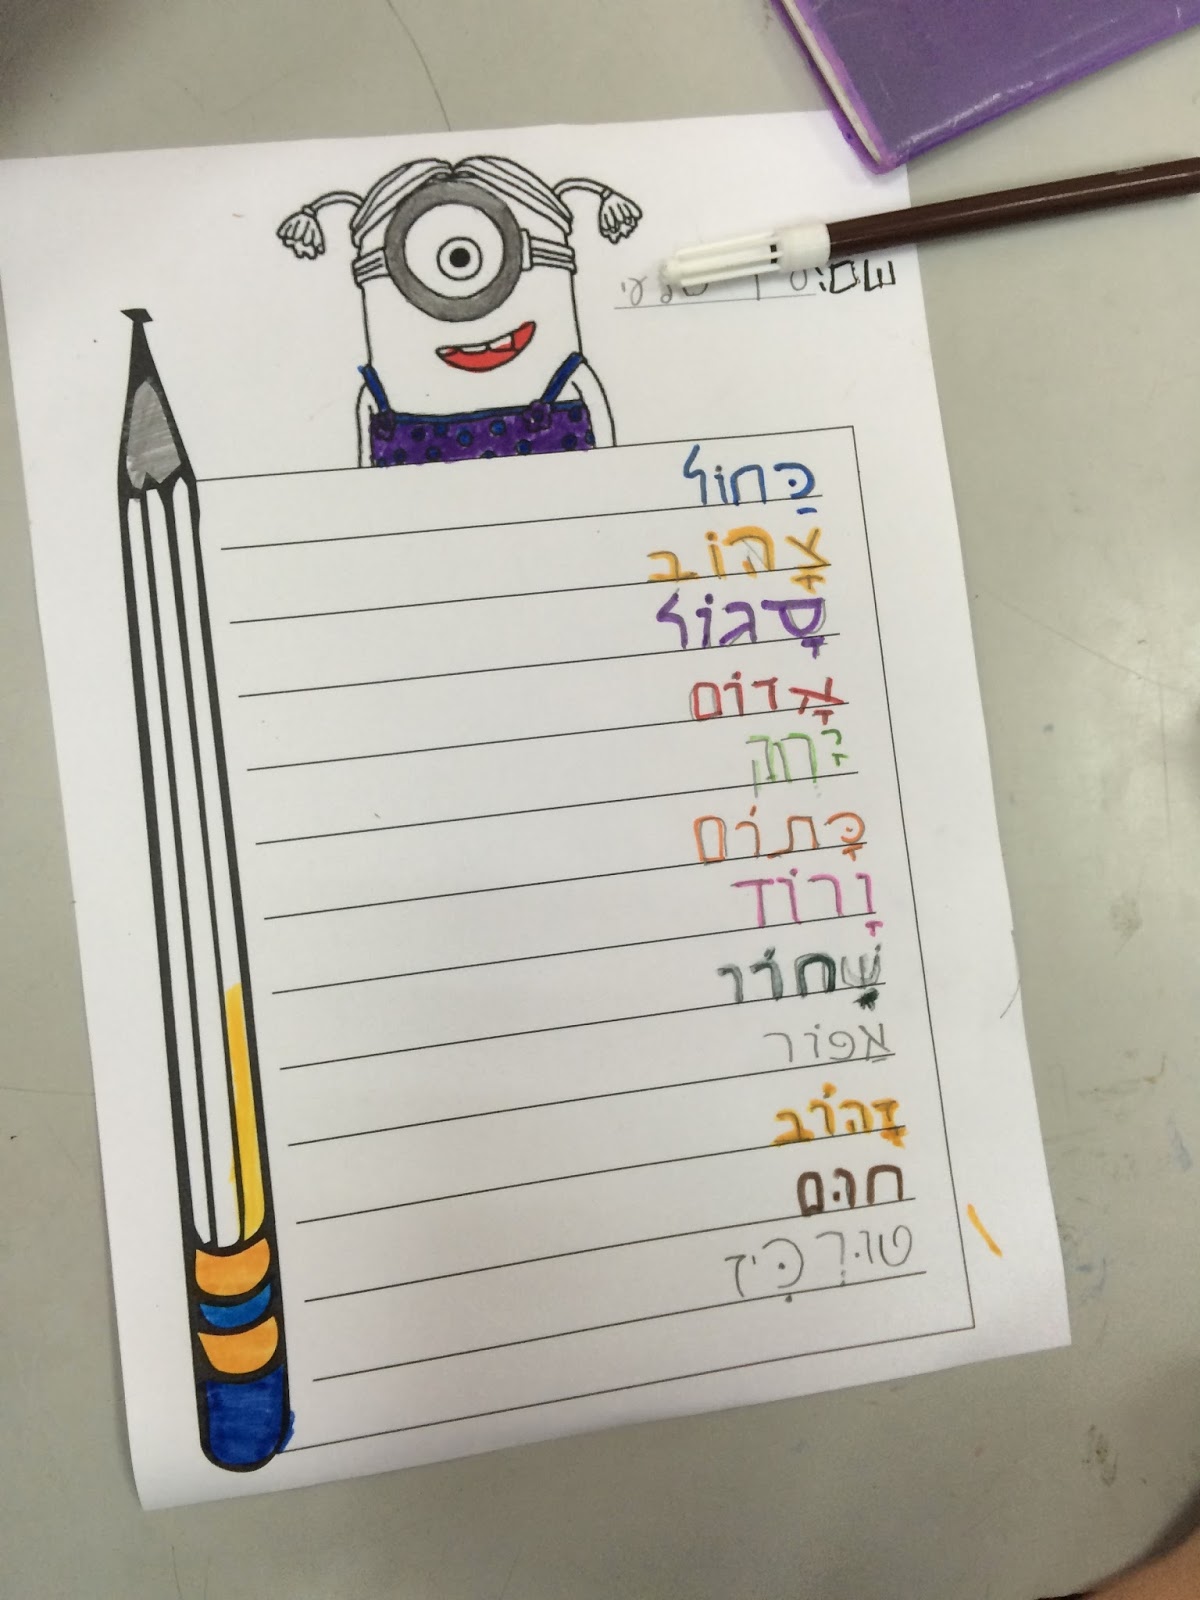 שם:
כַּחוֹל
צָהוֹב
סָגוֹל
אָדוֹם
יָרוֹק
כָּתוֹם
וָרוֹד
שָׁחוֹר
אַפוֹר
זָהוֹב
חוּם
טוּרְכִּיז